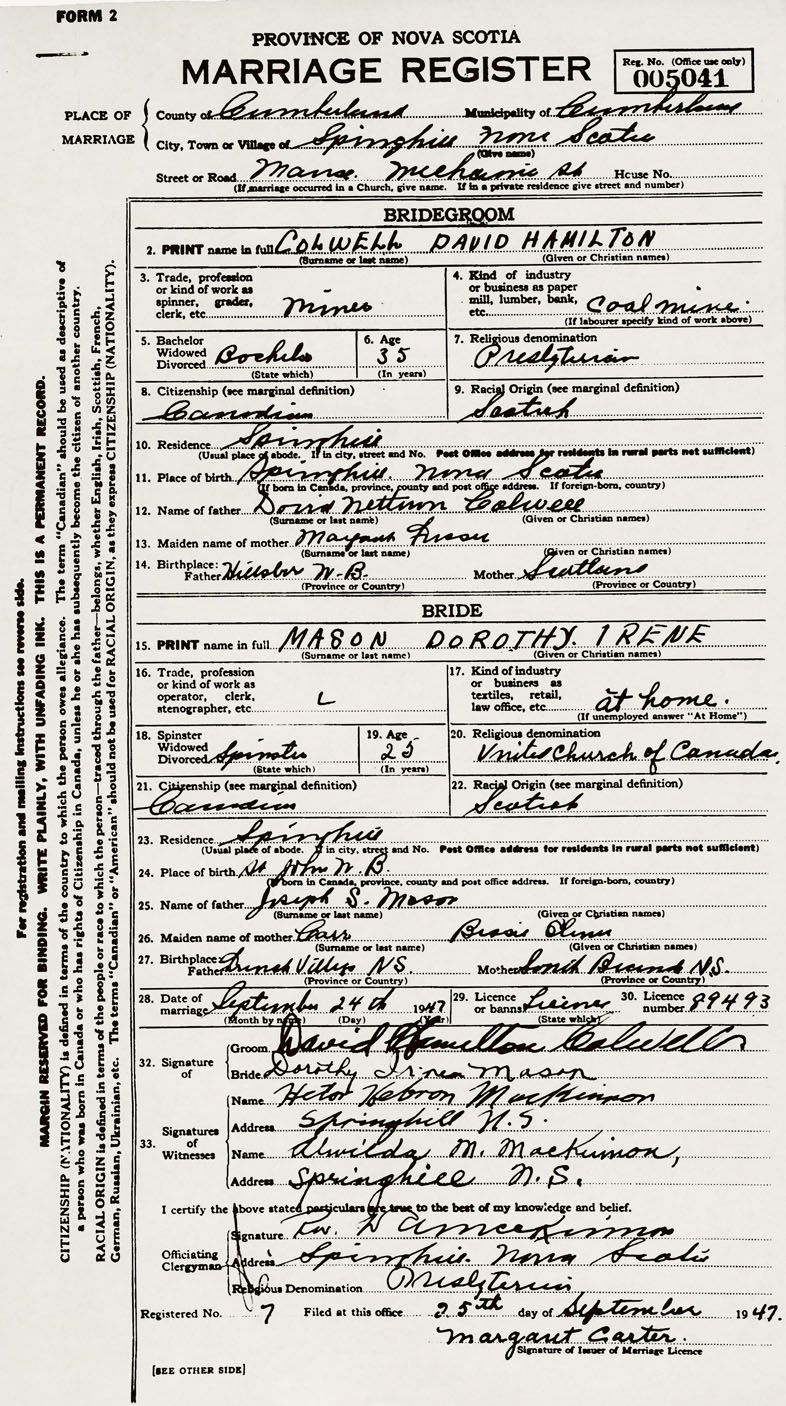 FORM 2
PROVINCE OF NOVA SCOTIA
MARRIAGE REGISTER
Reg. No. (Office use only)
005041
PLACE OF MARRIAGE
County of Cumberland Municipality of Cumberland
City, Town or Village of Springhill Nova Scotia
(Give name)
Street or Road Manse. Mechanic St House No.
(If marriage occurred in a Church, give name. If in a private residence give street and number)
BRIDEGROOM
2. PRINT name in full COLWELL DAVID HAMILTON
(Surname or last name) (Given or Christian names)
3. Trade, profession or kind of work as spinner, grader, clerk, etc. Miner
4. Kind of industry or business as paper mill, lumber, bank, etc. Coal mine.
(If labourer specify kind of work above)
5. Bachelor Widowed Divorced Bachelor
(State which)
6. Age 35
(In years)
7. Religious denomination
Presbyterian
8. Citizenship (see marginal definition)
Canadian
9. Racial Origin (see marginal definition)
Scotish
10. Residence Springhill
(Usual place of abode. If in city, street and No. Post Office address for residents in rural parts not sufficient)
11. Place of birth Springhill. Nova Scotia
(If born in Canada, province, county and post office address. If foreign-born, country)
12. Name of father David Colwell
(Surname or last name) (Given or Christian names)
13. Maiden name of mother
(Surname or last name) (Given or Christian names)
14. Birthplace:
Father N.B. Mother Scotland
(Province or Country) (Province or Country)
BRIDE
15. PRINT name in full MASON DOROTHY. IRENE
(Surname or last name) (Given or Christian names)
16. Trade, profession or kind of work as operator, clerk, stenographer, etc.
17. Kind of industry or business as textiles, retail, law office, etc. at home.
(If unemployed answer "At Home")
18. Spinster Widowed Divorced Spinster
(State which)
19. Age 25
(In years)
20. Religious denomination
United Church of Canada.
21. Citizenship (see marginal definition)
Canadian
22. Racial Origin (see marginal definition)
Scotish
23. Residence Springhill
(Usual place of abode. If in city, street and No. Post Office address for residents in rural parts not sufficient)
24. Place of birth St John N.B.
(If born in Canada, province, county and post office address. If foreign-born, country)
25. Name of father Joseph S. Mason
(Surname or last name) (Given or Christian names)
26. Maiden name of mother Carr Bessie
(Surname or last name) (Given or Christian names)
27. Birthplace:
Father French Village NS. Mother South N.S.
(Province or Country) (Province or Country)
28. Date of marriage September 24th 1947
(Month by name) (Day) (Year)
29. Licence or banns License
(State which)
30. Licence number 89493
32. Signature of
Groom David Hamilton Colwell
Bride Dorothy Irene Mason
33. Signatures of Witnesses
Name Hebron MacKinnon
Address Springhill N.S.
Name Alwilda M. MacKinnon,
Address Springhill N.S.
I certify the above stated particulars are true to the best of my knowledge and belief.
Officiating Clergyman
Signature Rev.
Address Springhill. Nova Scotia
Religious Denomination Presbyterian
Registered No. 7 Filed at this office 25th day of September 1947.
Margaret Carter.
Signature of Issuer of Marriage Licence
[SEE OTHER SIDE]
For registration and mailing instructions see reverse side.
MARGIN RESERVED FOR BINDING. WRITE PLAINLY, WITH UNFADING INK. THIS IS A PERMANENT RECORD.
CITIZENSHIP (NATIONALITY) is defined in terms of the country to which the person owes allegiance. The term "Canadian" should be used as descriptive of
a person who was born in Canada or who has rights of Citizenship in Canada, unless he or she has subsequently become the citizen of another country.
RACIAL ORIGIN is defined in terms of the people or race to which the person—traced through the father—belongs, whether English, Irish, Scottish, French,
German, Russian, Ukrainian, etc. The terms "Canadian" or "American" should not be used for RACIAL ORIGIN, as they express CITIZENSHIP (NATIONALITY).